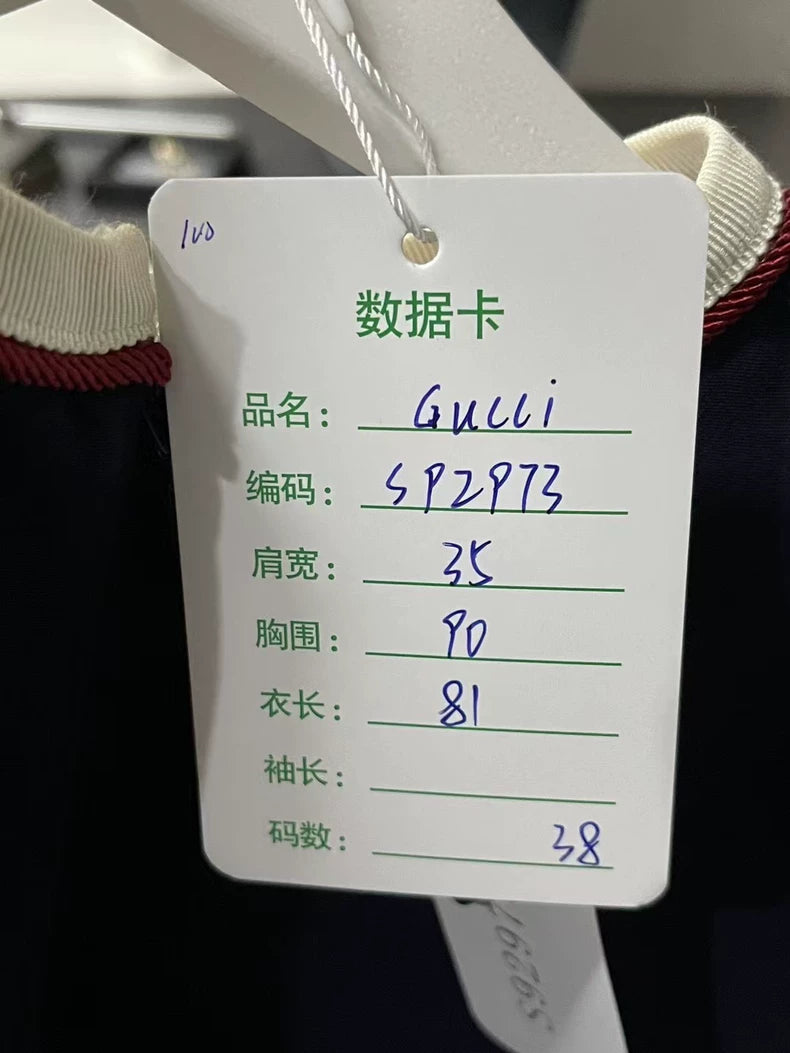 100
数据卡
品名： Gucci
编码： S92973
肩宽： 35
胸围： 90
衣长： 81
袖长：
码数： 38